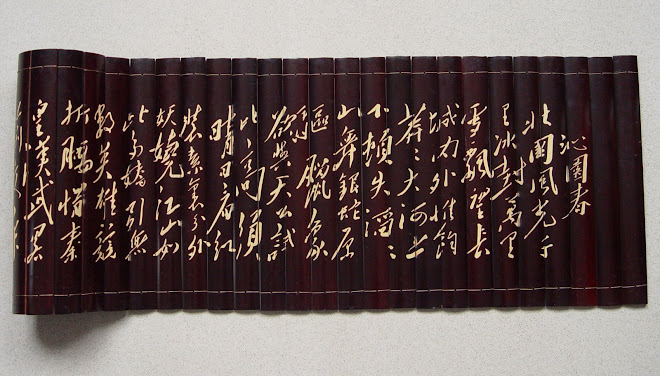 沁園春
北國風光千
里冰封萬里
雪飄望長
城内外惟餘
莽〻大河上
下頓失滔〻
山舞銀蛇原
驅臘象
欲與天公試
比高須
晴日看红
裝素裹分外
妖嬈江山如
此多嬌引無
數英雄競
折腰惜秦
皇漢武畧